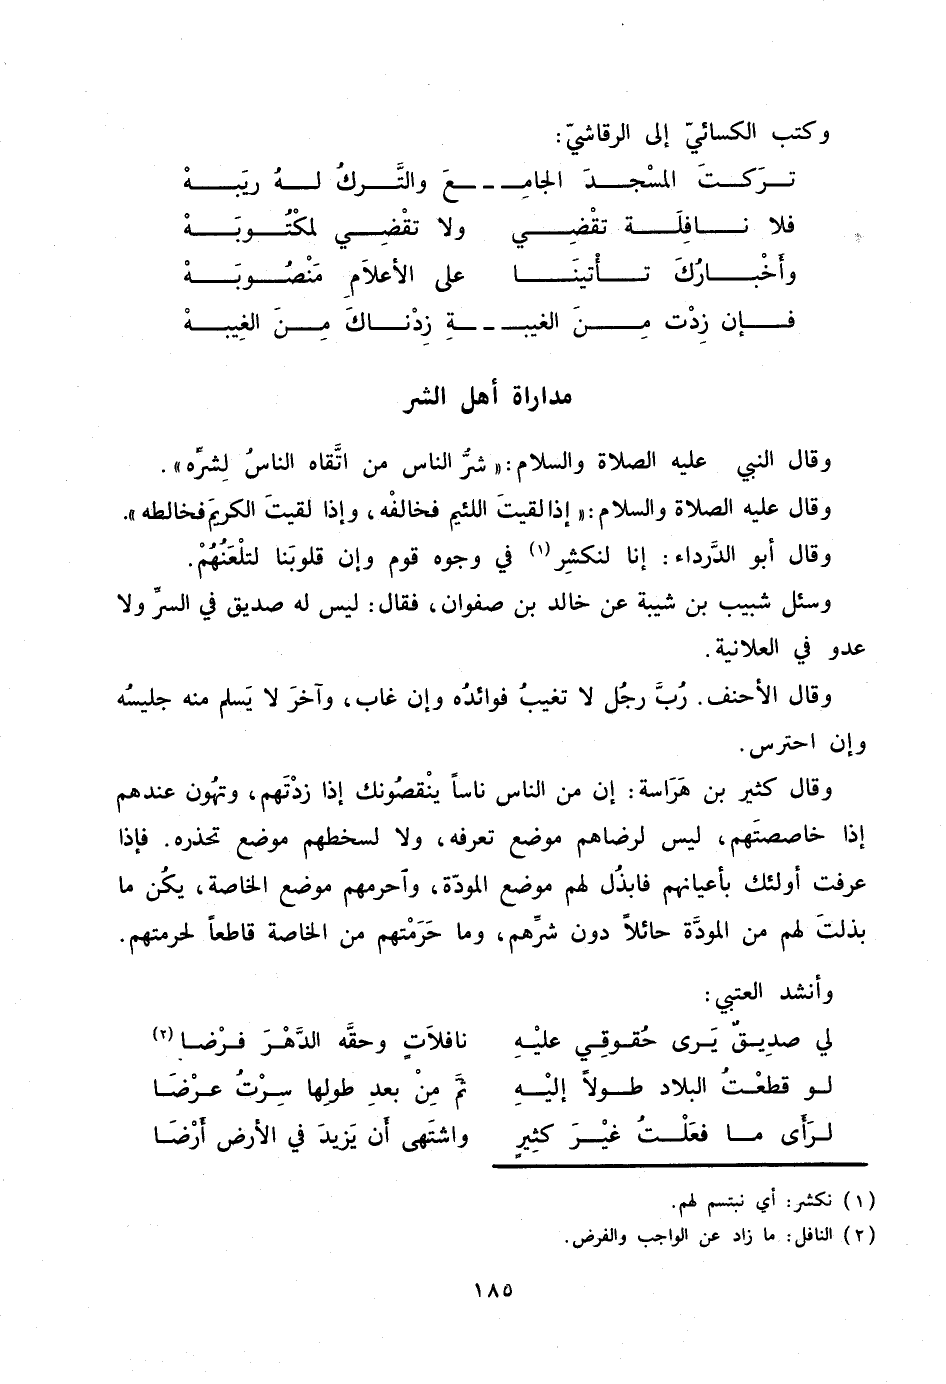 وكتب الكسائيّ إلى الرقاشيّ:
تـرَكـتَ المسْجـدَ الجامِـــعَ والتَّـركُ لـهُ ريَبـهْ
فلا نـافِلَـة تقْضِـي ولا تقْضِـي لمكْتُـوبَـهْ
وأَخْبـارُكَ تـأْتينَـا على الأعلاَمِ مَنْصُـوبَـهْ
فـإن زِدْت مِـنَ الغيبـــةِ زِدْنـاكَ مِـنَ الغِيبـهْ
مداراة أهل الشر
وقال النبي عليه الصلاة والسلام: «شرُّ الناس من اتَّقاه الناسُ لِشرِّه».
وقال عليه الصلاة والسلام: «إذا لقيتَ اللئيم فخالفْه، وإذا لقيتَ الكريمَ فخالطه».
وقال أبو الدَّرداء: إنا لنكشِر(١) في وجوه قوم وإن قلوبَنا لتلْعَنُهُمْ.
وسئل شبيب بن شيبة عن خالد بن صفوان، فقال: ليس له صديق في السرِّ ولا
عدو في العلانية.
وقال الأحنف. رُبَّ رجُل لا تغيبُ فوائدُه وإن غاب، وآخرَ لا يَسلم منه جليسُه
وإن احترس.
وقال كثير بن هَرَاسة: إن من الناس ناساً ينْقصُونك إذا زدْتَهم، وتهُون عندهم
إذا خاصصتَهم، ليس لرضاهم موضع تعرفه، ولا لسخطهم موضع تحذره. فإذا
عرفت أولئك بأعيانهم فابذُل لهم موضع المودّة، وآحرمهم موضع الخاصة، يكُن ما
بذلتَ لهم من المودَّة حائلاً دون شرِّهم، وما حَرَمْتهم من الخاصة قاطعاً لحرمتهم.
وأنشد العتبي:
لي صديـقٌ يَـرى حُقـوقِـي عليْـهِ نافلاَتٍ وحقَّه الدَّهْـرَ فـرْضـا(٢)
لـو قطعْـتُ البلاد طـولاً إليْـهِ ثمَّ مِنْ بعدِ طولِها سِـرْتُ عـرْضَـا
لـرَأَى مـا فعَلْـتُ غيْـرَ كثيرٍ واشتَهى أن يَزيدَ في الأرضِ أرْضَـا
(١) نكشر: أي نبتسم لهم.
(٢) النافل: ما زاد عن الواجب والفرض.
١٨٥